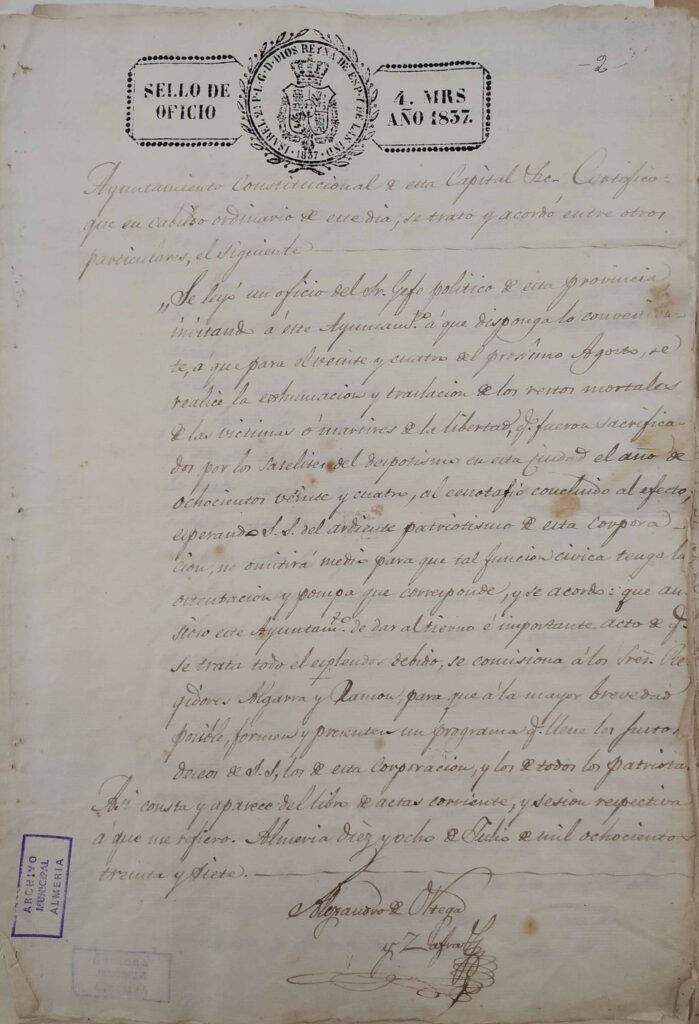 -2
SELLO DE
OFICIO
ISABEL 2ª P. L. G. D. DIOS REYNA DE ESP. Y DE LAS IND.
·1837·
4. MRS
AÑO 1837.
Ayuntamiento Constitucional de esta Capital &c. Certifico=
que en cabildo ordinario de este dia, se trató y acordó entre otros
particulares, el siguiente
"Se leyó un oficio del Sr. Gefe politico de esta provincia
invitando á este Ayuntam.to á que disponga lo convenien
te, á que para el veinte y cuatro del procsimo Agosto, se
realice la exhumacion y traslacion de los restos mortales
de las victimas ó martires de la libertad, q.e fueron sacrifica-
dos por los satelites del despotismo en esta Ciudad el año de
ochocientos veinte y cuatro, al cenotafio concluido al efecto,
esperando S.S. del ardiente patriotismo de esta corpora
cion, no omitirá medio para que tal funcion civica tenga la
ostentacion y pompa que corresponde, y se acordo: que an
sioso este Ayuntam.to de dar al tierno é importante acto de q.e
se trata todo el esplendor debido, se comisiona á los Sres. Re
gidores Algarra y Ramon, para que á la mayor brevedad
posible, formen y presenten un programa q.e llene los justos
deseos de S.S., los de esta Corporacion, y los de todos los patriotas.
Asi consta y aparece del libro de actas corriente, y sesion respectiva
á que me refiero. Almeria diez y ocho de Julio de mil ochocientos
treinta y siete.
Alexandro de Ortega
y Zafra
ARCHIVO
MUNICIPAL
ALMERIA